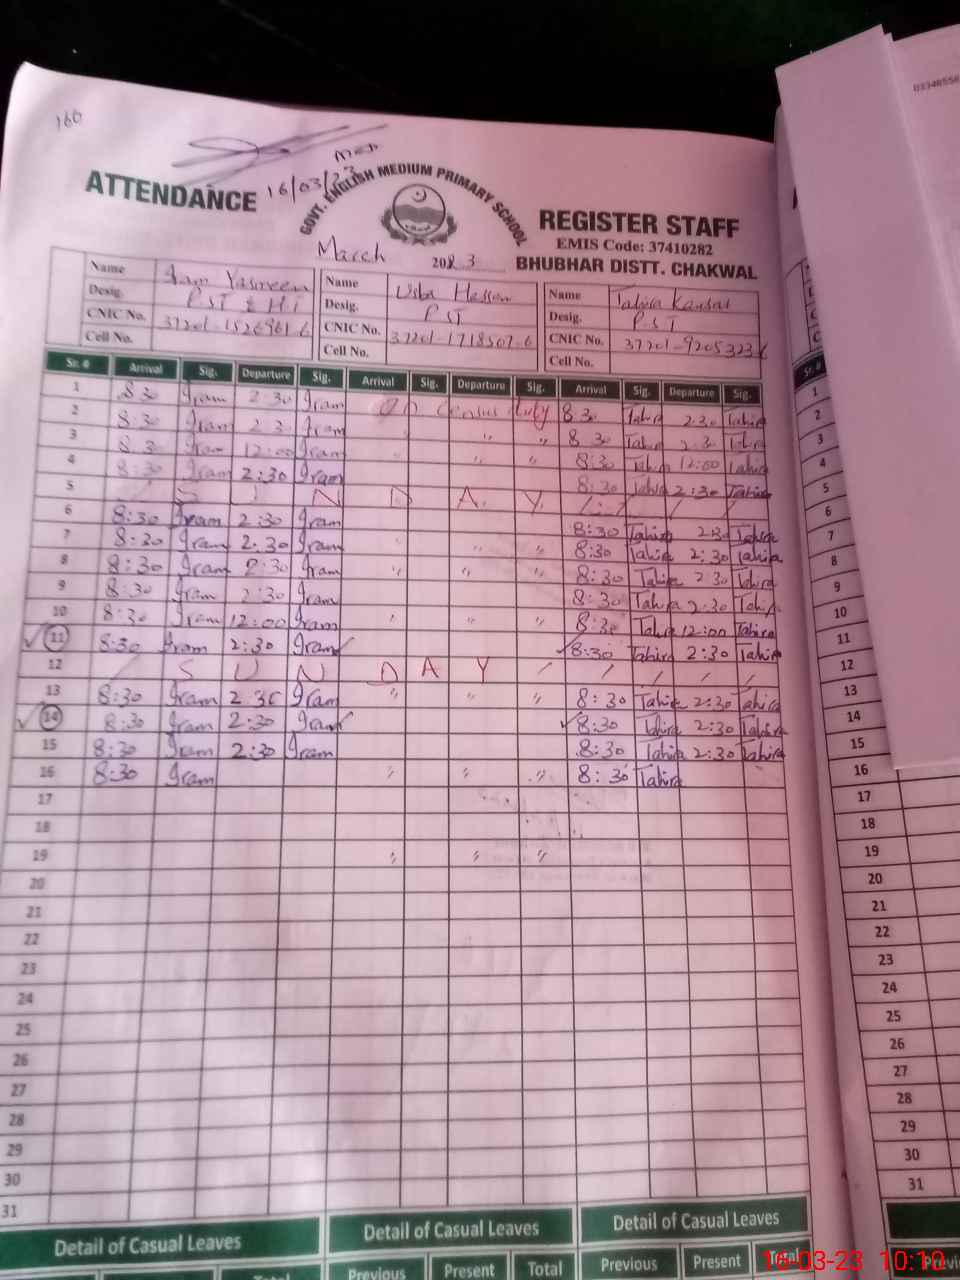 160
16/03/23
ATTENDANCE
GOVT. ENGLISH MEDIUM PRIMARY SCHOOL
REGISTER STAFF
EMIS Code: 37410282
March 2023
BHUBHAR DISTT. CHAKWAL
Name Iram Yasmeen Name Name Tahira Kausar
Desig. Desig. PST Desig. P.S.T
CNIC No. CNIC No. CNIC No.
Cell No. Cell No. Cell No.
Sr. # Arrival Sig. Departure Sig. Arrival Sig. Departure Sig. Arrival Sig. Departure Sig.
1 8:30 Iram 2:30 Iram On Census duty 8:30 Tahira 2:30 Tahira
2 8:30 Iram 2:30 Iram " " 8:30 Tahira 2:30 Tahira
3 8:30 Iram 12:00 Iram " " 8:30 Tahira 12:00 Tahira
4 8:30 Iram 2:30 Iram 8:30 Tahira 2:30 Tahira
5 S U N D A Y
6 8:30 Iram 2:30 Iram 8:30 Tahira 2:30 Tahira
7 8:30 Iram 2:30 Iram " " 8:30 Tahira 2:30 Tahira
8 8:30 Iram 2:30 Iram " " " 8:30 Tahira 2:30 Tahira
9 8:30 Iram 2:30 Iram 8:30 Tahira 2:30 Tahira
10 8:30 Iram 12:00 Iram " " " 8:30 Tahira 12:00 Tahira
11 8:30 Iram 2:30 Iram 8:30 Tahira 2:30 Tahira
12 S U N D A Y
13 8:30 Iram 2:30 Iram " " " 8:30 Tahira 2:30 Tahira
14 8:30 Iram 2:30 Iram 8:30 Tahira 2:30 Tahira
15 8:30 Iram 2:30 Iram 8:30 Tahira 2:30 Tahira
16 8:30 Iram " " " 8:30 Tahira
17
18
19 " " "
20
21
22
23
24
25
26
27
28
29
30
31
Detail of Casual Leaves Detail of Casual Leaves Detail of Casual Leaves
Total Previous Present Total Previous Present Total
Sr. #
1
2
3
4
5
6
7
8
9
10
11
12
13
14
15
16
17
18
19
20
21
22
23
24
25
26
27
28
29
30
31
16-03-23 10:10